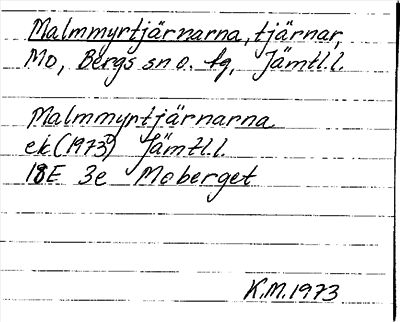 Malmmyrtjärnarna, tjärnar,
Mo, Bergs sn o. tg, Jämtl. l.
Malmmyrtjärnarna
ek (1973) Jämtl. l.
18E 3e Moberget
K.M. 1973